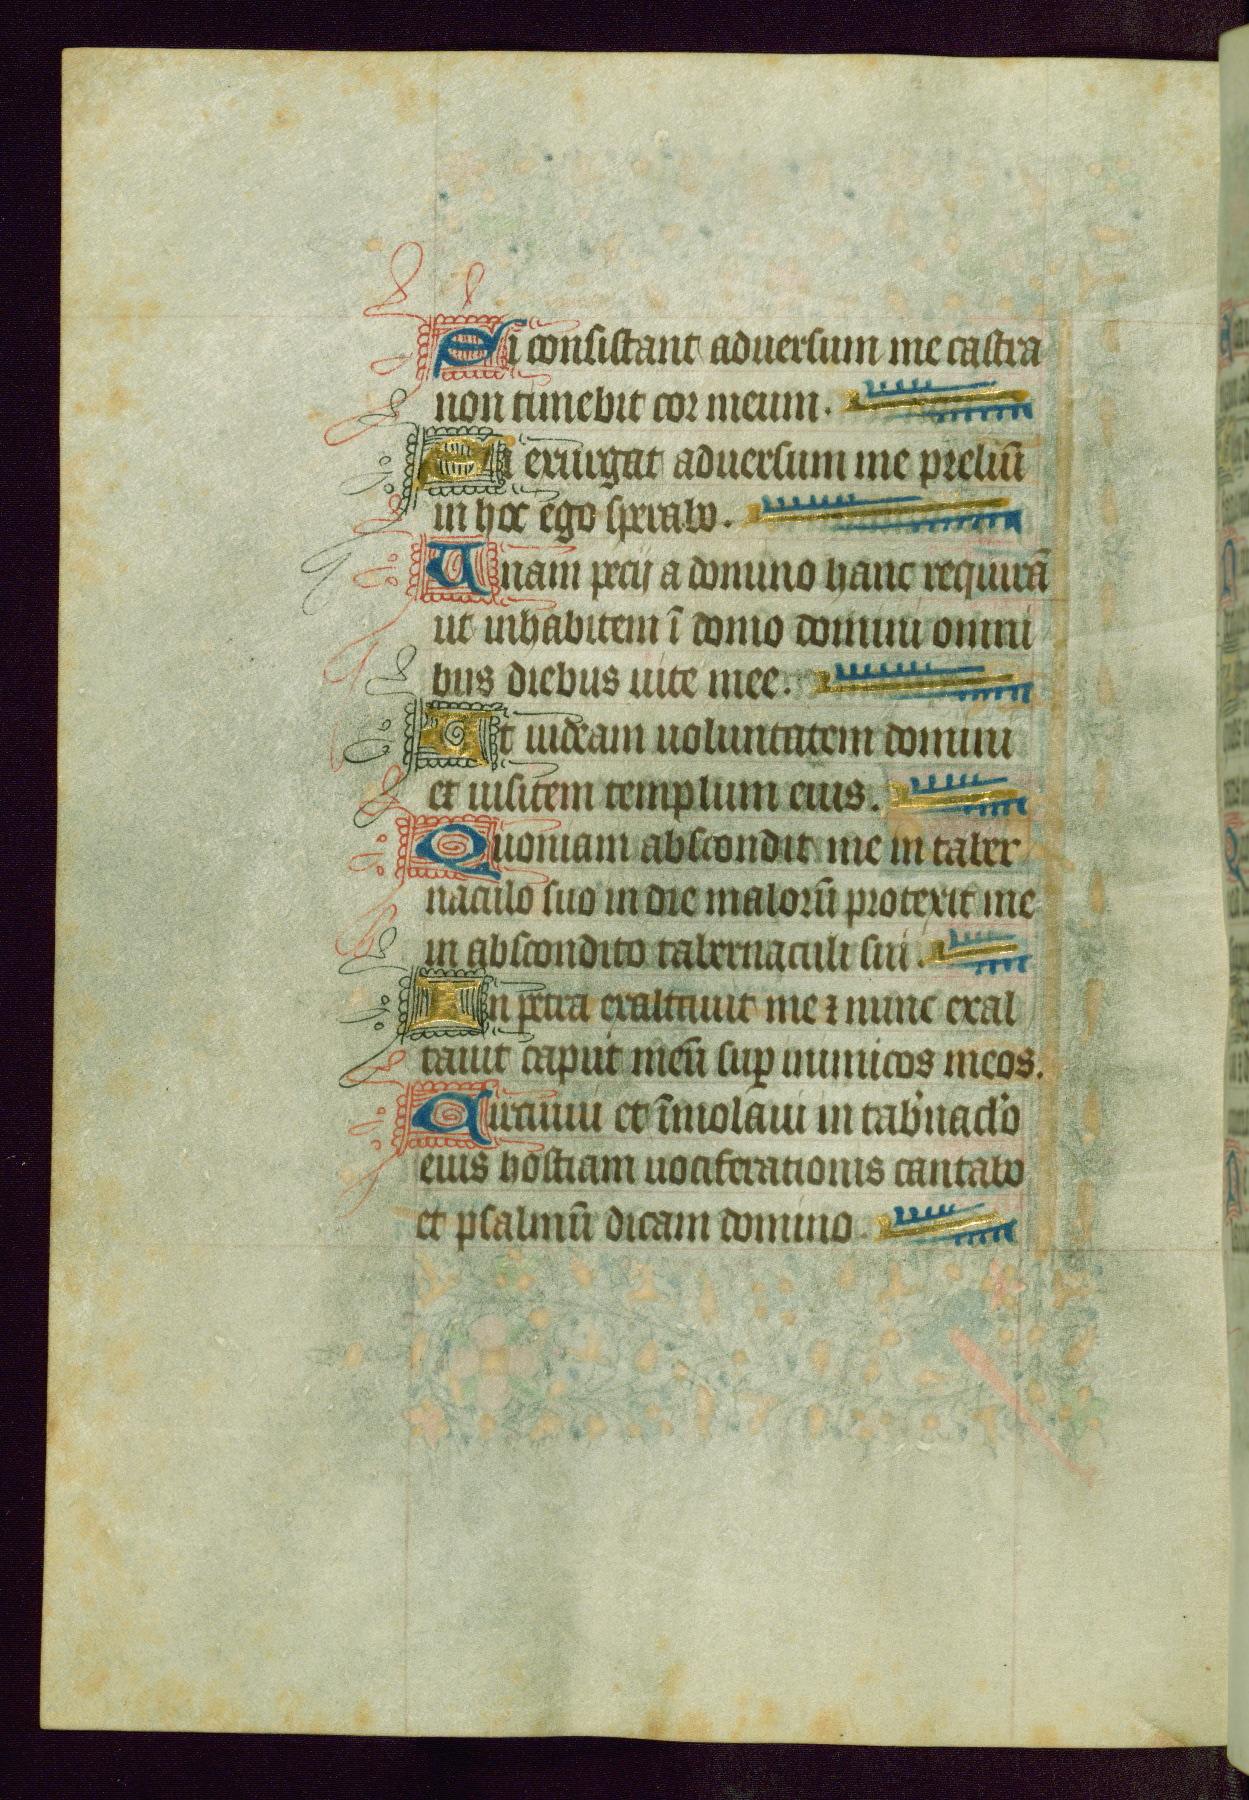 Si consistant aduersum me castra
non timebit cor meum.
Si exurgat aduersum me preliū
in hoc ego sperabo.
Unam pecij a domino hanc requirā
ut inhabitem ī domo domini omni
bus diebus uite mee.
Ut uideam uoluntatem domini
et uisitem templum eius.
Quoniam abscondit me in taber
naculo suo in die malorū protexit me
in abscondito tabernaculi sui.
In petra exaltauit me ⁊ nunc exal
tauit caput meū suꝑ inimicos meos.
Circuiui et īmolaui in tab'nac'lo
eius hostiam uociferationis cantabo
et psalmū dicam domino.